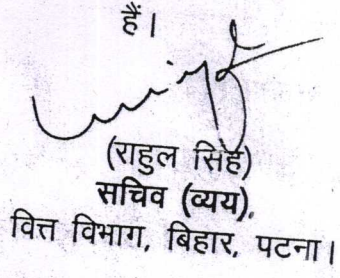 हैं।
(राहुल सिंह)
सचिव (व्यय),
वित्त विभाग, बिहार, पटना।